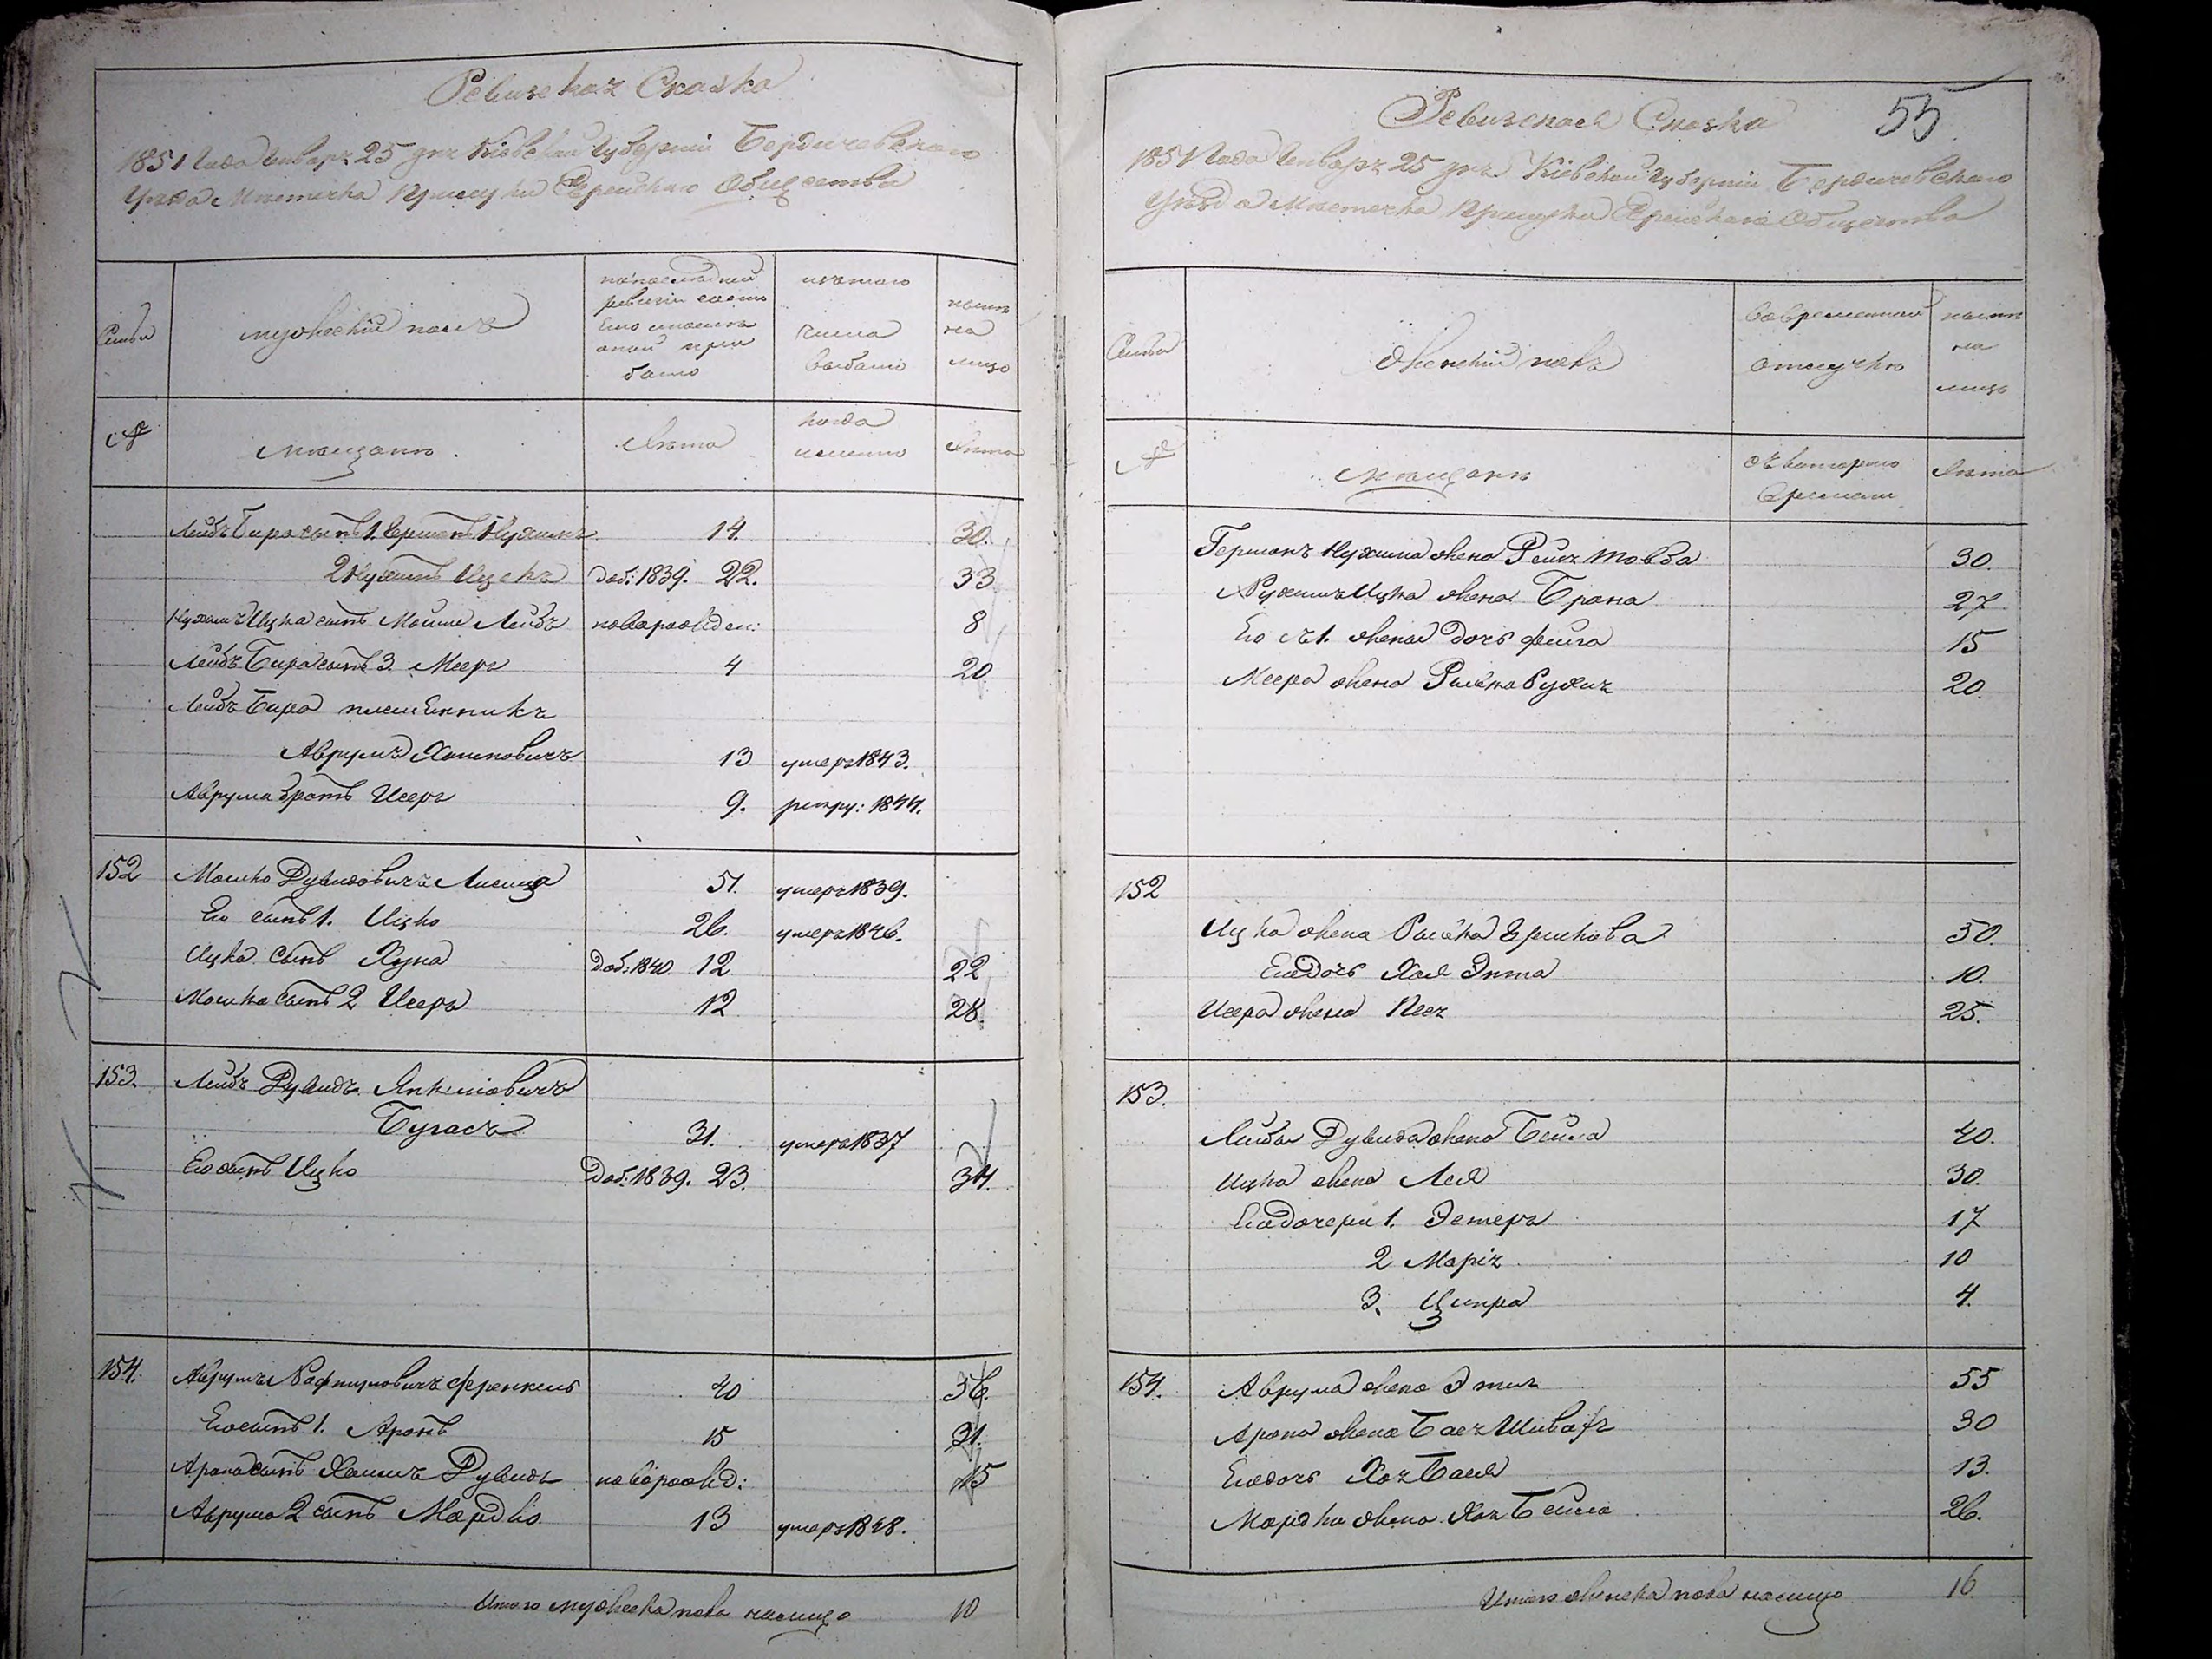 Ревизская Сказка
1851 Года Генваря 25 дня Кіевской Губерніи Бердичевскаго
Уѣзда Мѣстечка Прилуки Еврейскаго Общества
Семьи
мужескій полъ
по последней
ревизіи состо
было
изъ того
числа
выбыло
нынѣ
на
лицо
№
мѣщанѣ
Лѣта
когда
именно
Лѣта
Лейбъ Бира сынъ 1. Гершонъ Нухимъ 14. 30.
2 Нухимъ Ицекъ доб: 1839. 22. 33
Нухимъ Ицка сынъ Мошко Лейбъ новорожден: 8
Лейбъ Бира сынъ 3. Мееръ 4 20
Лейбъ Бира племенникъ
Аврумъ Хаимовичъ 13 умеръ 1843.
Аврума братъ Исеръ 9. рекру: 1844.
152 Мошко Дувидовичъ Лисица 51. умеръ 1839.
Его сынъ 1. Ицко 26. умеръ 1846.
Ицка сынъ Хуна доб: 1840. 12 22
Мошка сынъ 2 Исеръ 12 28.
153. Лейбъ Дувидъ Янкеліовичъ
Бугасъ 31. умеръ 1837
Его сынъ Ицко доб: 1839. 23. 34.
154. Аврумъ Нафтуловичъ Френкель 40 56.
Его сынъ 1. Аронъ 15 31.
Арона сынъ Хаимъ Дувидъ новорожд: 15
Аврума 2 сынъ Мордко 13 умеръ 1848.
Итого мужеска пола налицо 10
Ревизская Сказка 55
1851 Года Генваря 25 дня Кіевской Губерніи Бердичевскаго
Уѣзда Мѣстечка Прилуки Еврейскаго Общества
Семьи
женскій полъ
во временной
отлучкѣ
нынѣ
на
лицо
№
мѣщанѣ
съ котораго
времени
Лѣта
Гершонъ Нухима жена Рейзя Товба 30.
Нухимъ Ицка жена Брана 27
Его съ 1. женою дочь Фейга 15
Меера жена Рыся Рухля 20.
152
Ицка жена Рыська Ершкова 50.
Его дочь Хая Энта 10.
Исера жена Песя 25.
153.
Лейбы Дувида жена Бейла 40.
Ицка жена Лея 30.
Его дочери 1. Эстеръ 17
2 Марія 10
3. Ципра 4.
154. Аврума жена Этля 55
Арона жена Бася Шива 30
Его дочь Хая Бася 13.
Мордка жена Хая Бейла 26.
Итого женска пола налицо 16